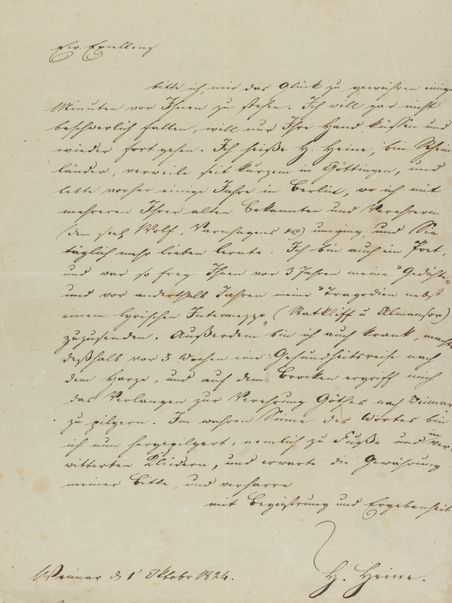 Ew Exellenz
bitte ich, mir das Glück zu gewähren einige
Minuten vor Ihnen zu stehen. Ich will gar nicht
beschwerlich fallen, will nur Ihre Hand küssen und
wieder fort gehen. Ich heiße H. Heine, bin Rhein
länder, verweile seit kurzem in Göttingen, und
lebte vorher einige Jahre in Berlin, wo ich mit
mehreren Ihrer alten Bekannten und Verehrern
(dem seel. Wolf, Varnhagens &c) umging, und Sie
täglich mehr lieben lernte. Ich bin auch ein Poet,
und war so frey Ihnen vor 3 Jahren meine "Gedichte"
und vor anderthalb Jahren meine "Tragödien nebst
einem lyrischen Intermezzo" (Ratkliff u Almansor)
zuzusenden. Außerdem bin ich auch krank, machte
deßhalb vor 3 Wochen eine Gesundheitsreise nach
dem Harze, und auf dem Brocken ergriff mich
das Verlangen zur Verehrung Göthes nach Weimar
zu pilgern. Im wahren Sinne des Wortes bin
ich nun hergepilgert, nemlich zu Fuße und in ver
witterten Kleidern, und erwarte die Gewährung
meiner Bitte, und verharre
mit Begeistrung und Ergebenheit
H. Heine.
Weimar d 1 Oktobr 1824.